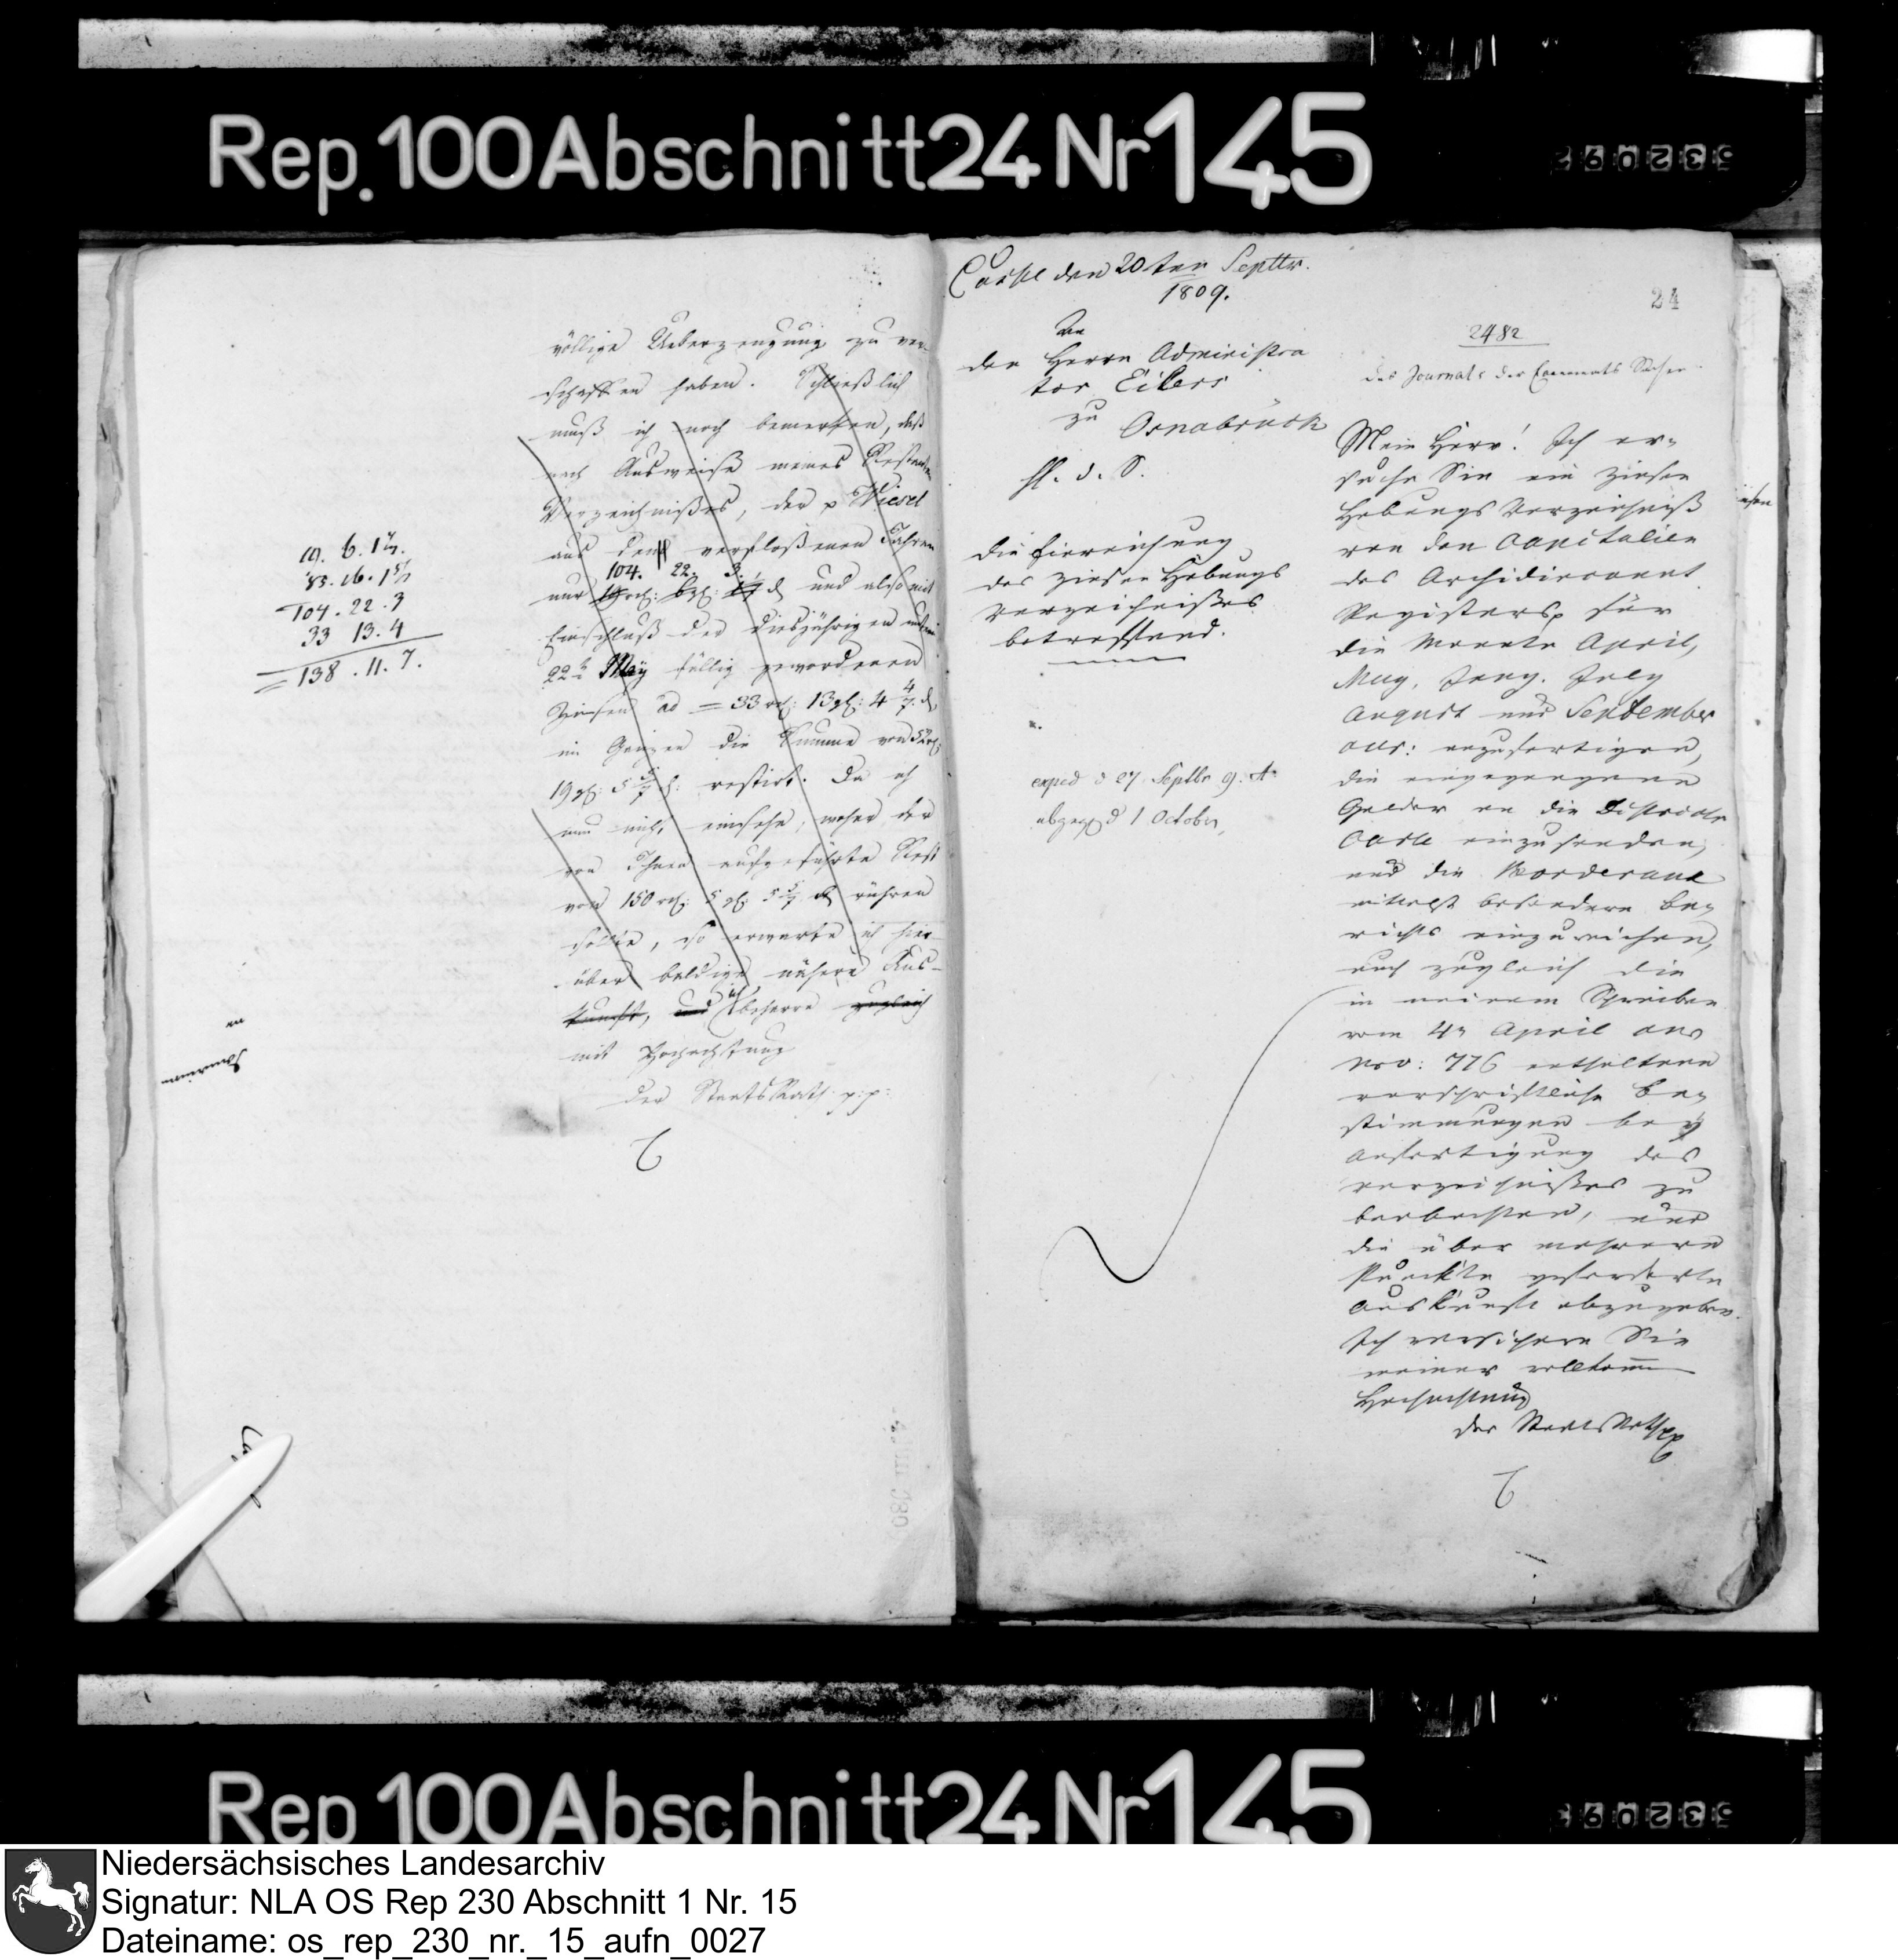 Rep. 100 Abschnitt 24 Nr 145
völlige Ueberzeugung zu ver-
schaffen haben. Schließlich
muß ich noch bemerken, daß
nach Ausweise meines Restanten
Verzeichnißes, der p Wiesel
aus den verfloßenen Jahren
104. 22. 3.
nur und also mit
Einschluß der diesjährigen
22t May fällig gewordenen
Zinsen ad = 33 rth: 13 gl: 4 4/7 d,
im Ganzen die Summe von
19 gl: 5 5/7 d: restirt. Da ich
nun nicht einsehe, woher der
von Ihnen aufgeführte Rest
von 150 rth: 5 gl: 5 5/7 d rühren
sollte, so erwarte ich hier-
über baldige nähere Aus-
kunft, und ich beharre zugleich
mit Hochachtung
Der StaatsRath p:p:
19. 6. 1 5/7.
85. 16. 1 5/7
104. 22. 3
33 13. 4
= 138. 11. 7.
Cassel den 20ten Septbr.
1809.
An
den Herrn Administra
tor Eilers
zu Osnabrück
H. d. S.
die Einreichung
des Zinsen Hebungs
Verzeichnißes
betreffend.
exped d 27 Septbr 9. A.
abgeg d 1 October
24
2482
des Journals der Commun
Mein Herr! Ich er-
suche Sie ein Zinsen
Hebungs Verzeichniß
von den Capitalien
des Archidiaconat
Registers für
die Monate April,
May, Juny, July
August und September
anzufertigen,
die eingegangenen
Gelder an die Districts
Casse einzusenden,
und die Borderaux
mittelst besondern Be-
richts einzureichen,
auch zugleich die
in meinem Schreiben
vom 4n April
Nro: 776 enthaltene
vorschriftliche Be-
stimmungen bey
Anfertigung des
Verzeichnißes zu
beobachten, und
die über mehrere
Puncte geforderte
Auskunft abzugeben.
Ich versichere Sie
meiner vollkomm
Hochachtung
der StaatsRath pp
Rep 100 Abschnitt 24 Nr 145
Niedersächsisches Landesarchiv
Signatur: NLA OS Rep 230 Abschnitt 1 Nr. 15
Dateiname: os_rep_230_nr._15_aufn_0027